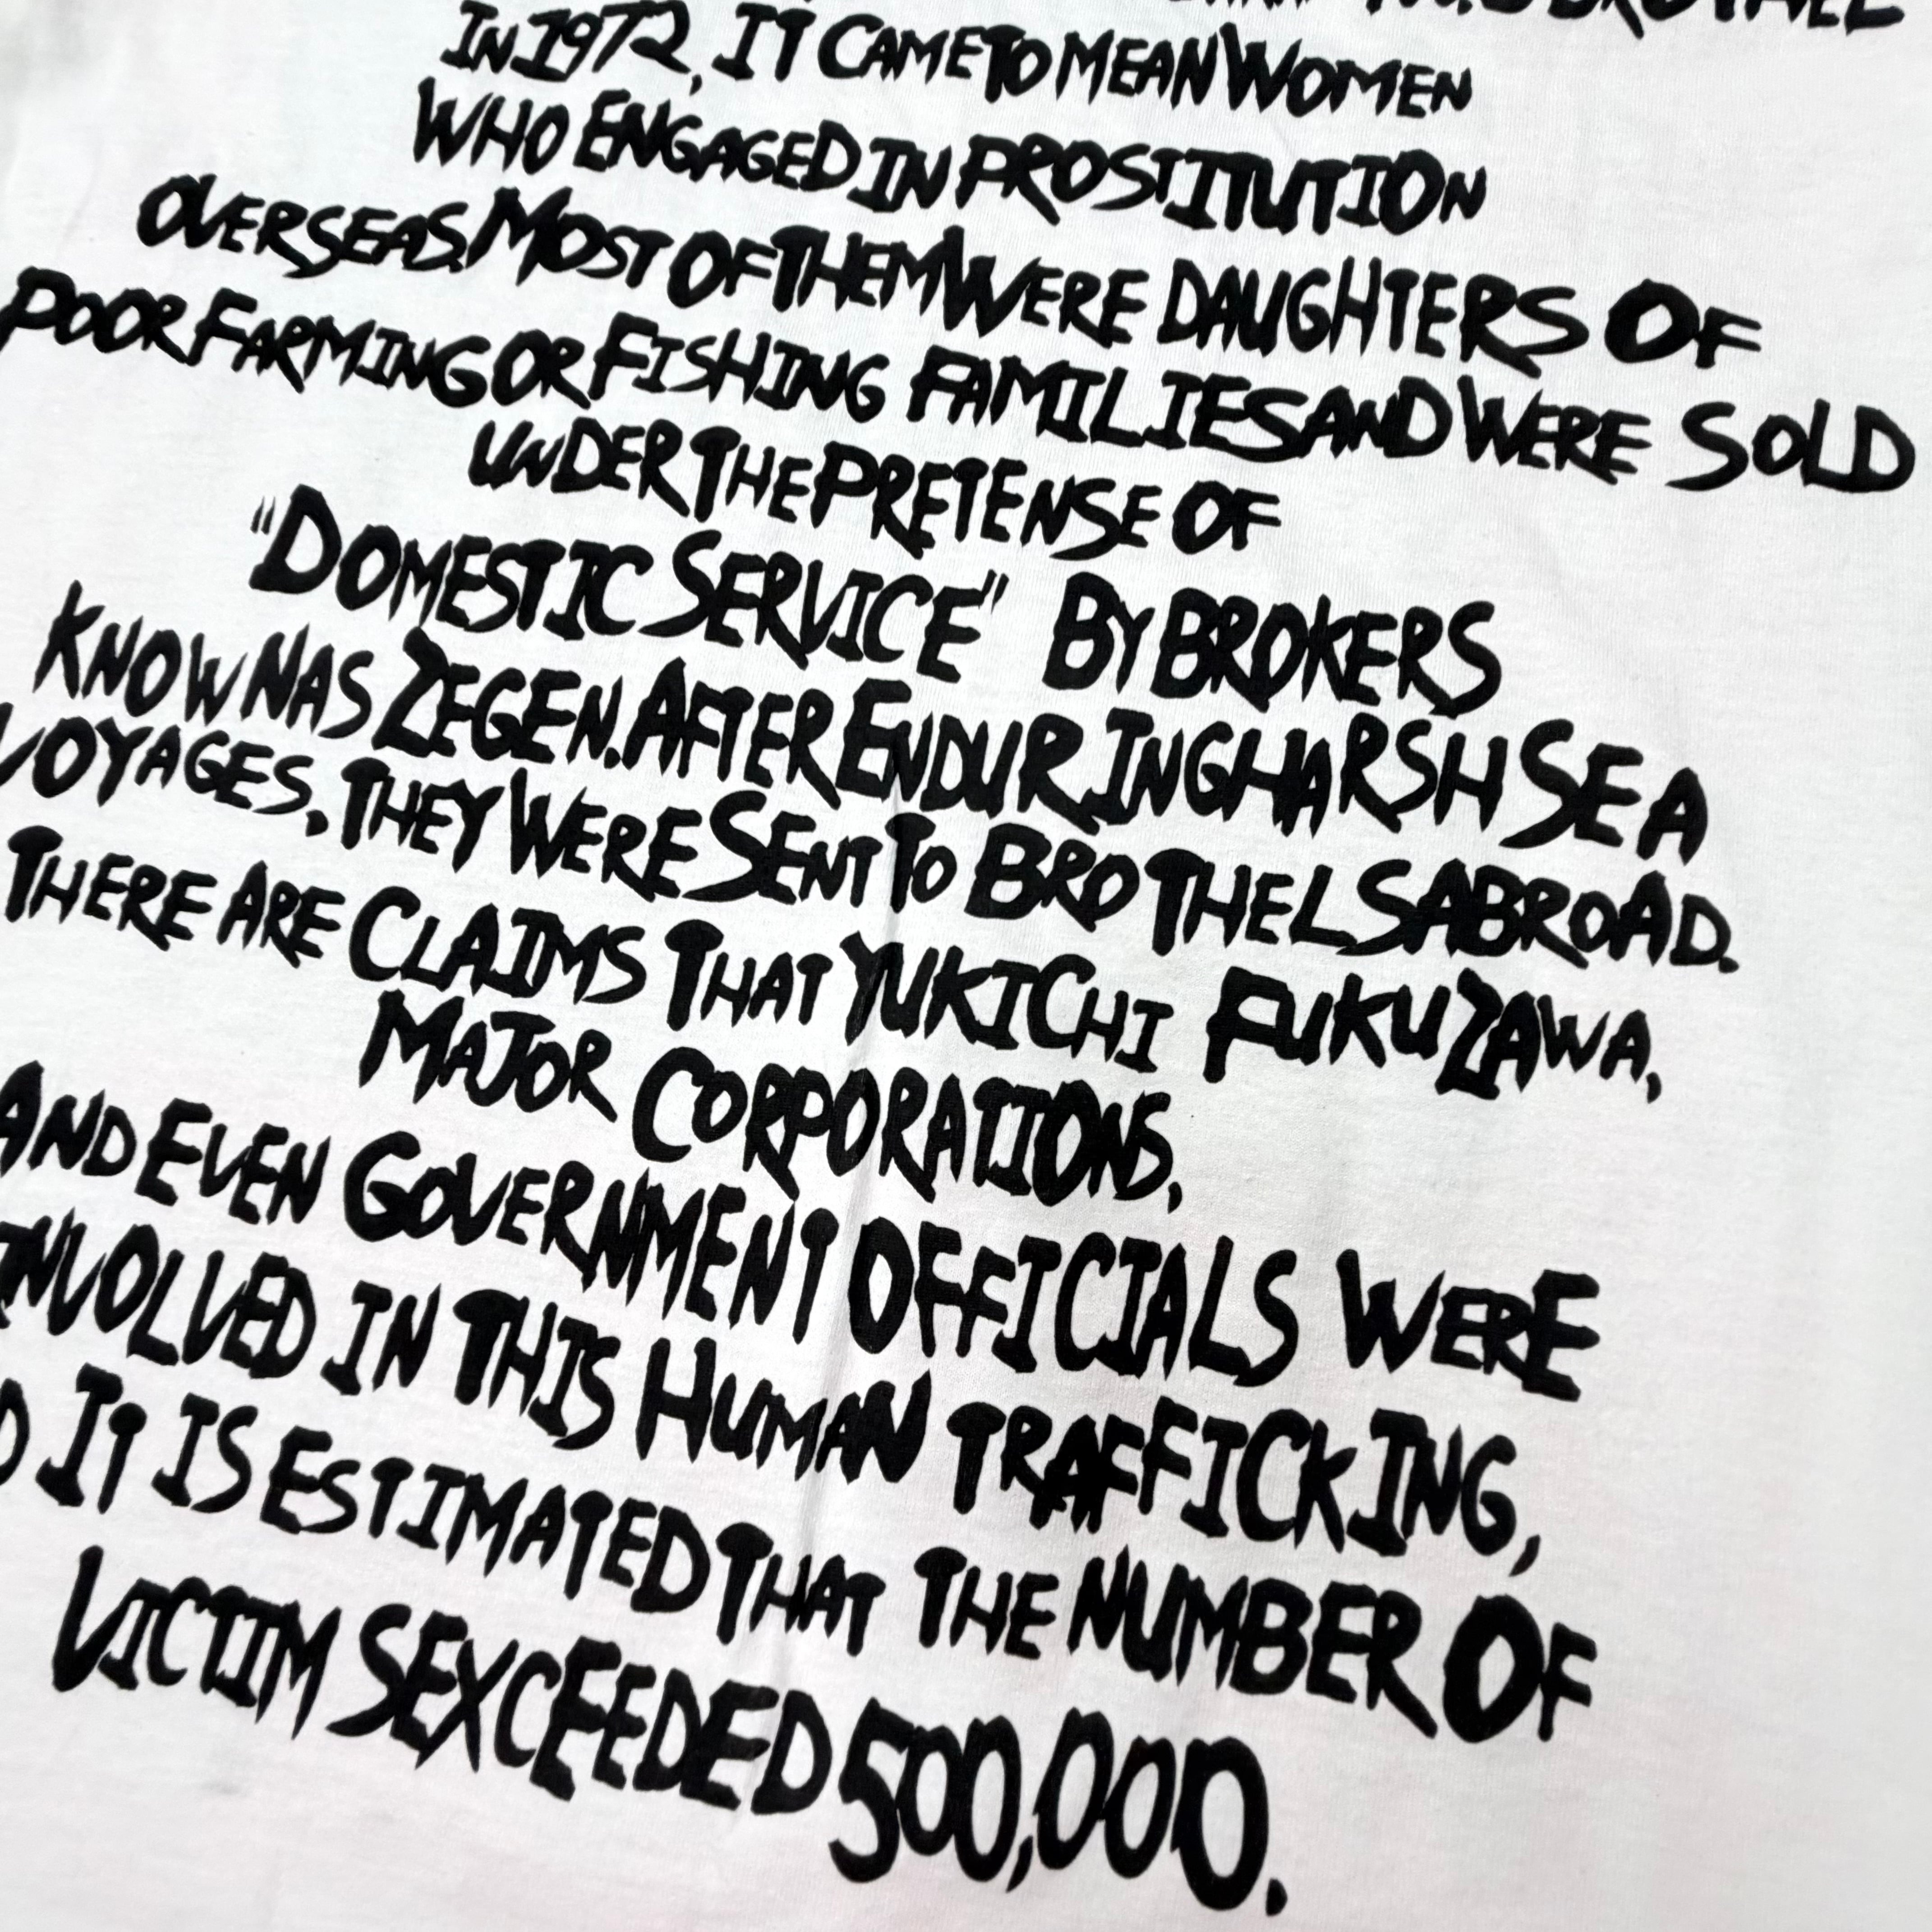 In 1972, It Came To Mean Women
Who Engaged In Prostitution
Overseas. Most Of Them Were Daughters Of
Poor Farming Or Fishing Families And Were Sold
Under The Pretense Of
"Domestic Service" By Brokers
Known As Zegen. After Enduring Harsh Sea
Voyages, They Were Sent To Brothels Abroad.
There Are Claims That Yukichi Fukuzawa,
Major Corporations,
And Even Government Officials Were
Involved In This Human Trafficking,
It Is Estimated That The Number Of
Victim Sexceeded 500,000.